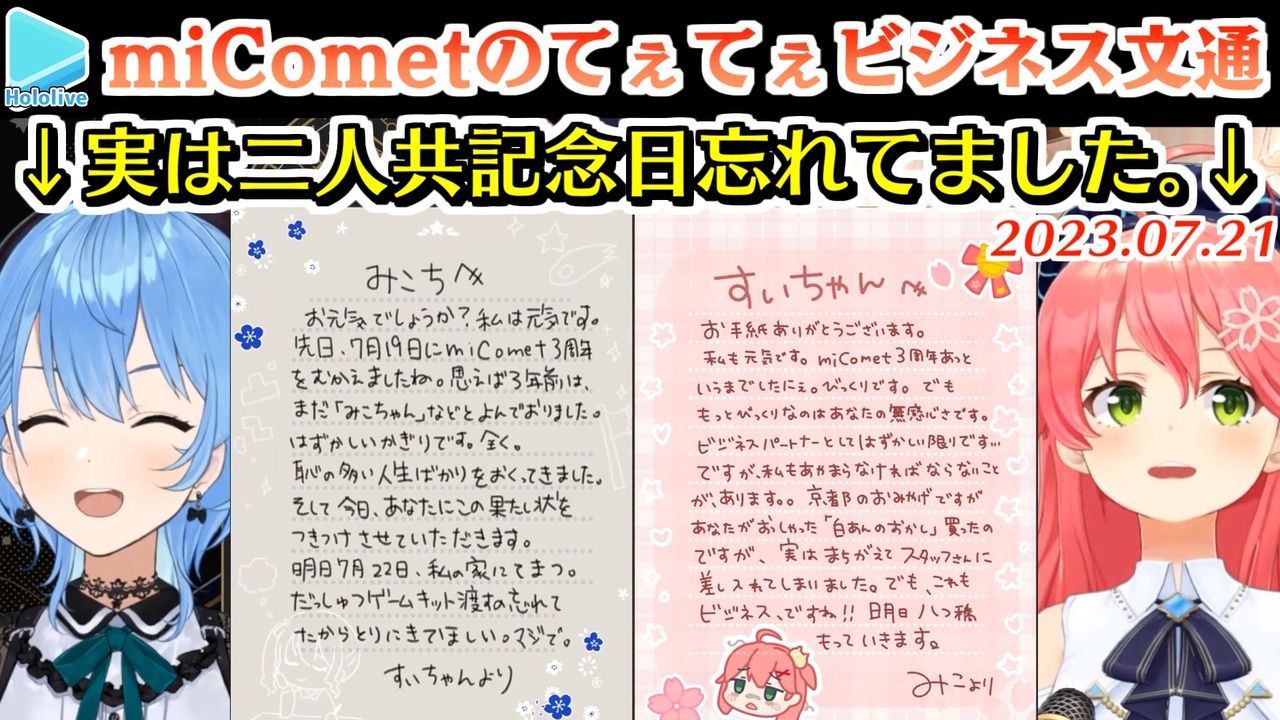 miCometのてぇてぇビジネス文通
Hololive
↓実は二人共記念日忘れてました。↓
2023.07.21
みこちへ
お元気でしょうか?私は元気です。
先日、7月19日にmiComet3周年
をむかえましたね。思えば3年前は、
まだ「みこちゃん」などとよんでおりました。
はずかしいかぎりです。全く。
恥の多い人生ばかりをおくってきました。
そして今日、あなたにこの果たし状を
つきつけさせていただきます。
明日7月22日、私の家にてまつ。
だっしゅつゲームキット渡すの忘れて
たからとりにきてほしい。マジで。
すいちゃんより
すいちゃんへ
お手紙ありがとうございます。
私も元気です。miComet3周年あっと
いうまでしたにぇ。びっくりです。でも
もっとびっくりなのはあなたの無感心さです。
ビジネスパートナーとしてはずかしい限りです…
ですが、私もあやまらなければならないこと
が、あります。。京都のおみやげですが
あなたがおしゃった「白あんのおかし」買ったの
ですが、実はまちがえてスタッフさんに
差し入れてしまいました。でも、これも
ビジネス、ですね!!明日八つ橋
もっていきます。
みこより